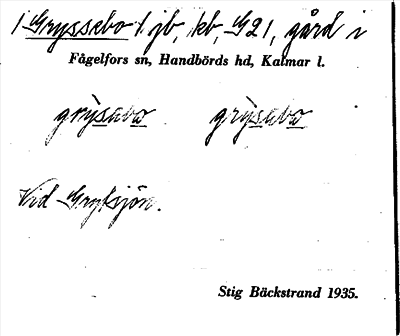 1 Gryssebo 1 jb, kb, G21, gård i
Fågelfors sn, Handbörds hd, Kalmar l.
grỳsabo grỳsabo
Vid Grytsjön.
Stig Bäckstrand 1935.